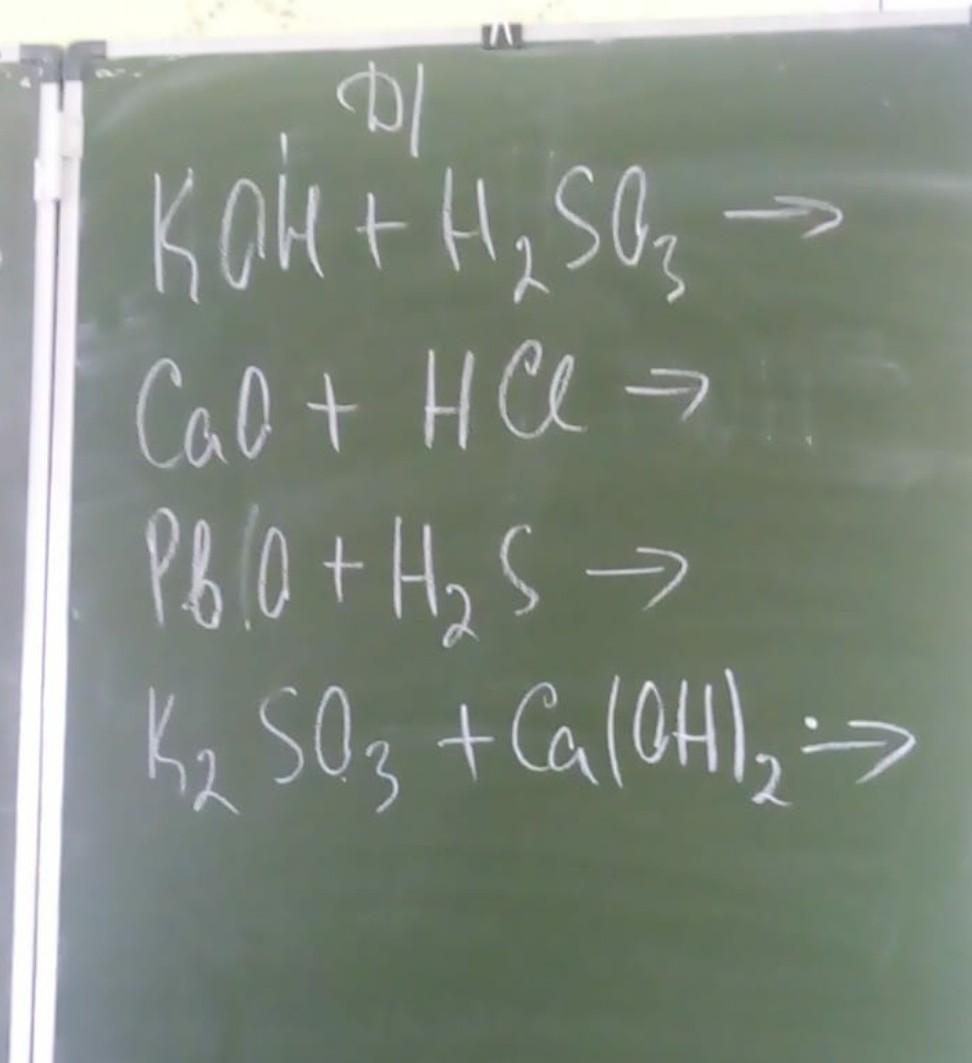 D/
KOH + H₂SO₃ →
CaO + HCl →
PbO + H₂S →
K₂SO₃ + Ca(OH)₂ →